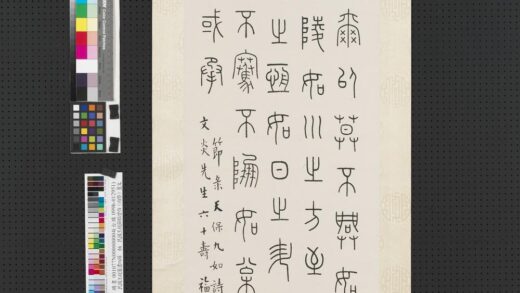 爾以莫不興如
陵如川之方至
之恆如日之升
不騫不崩如松
或承
節彔天保九如詩
文炎先生六十壽